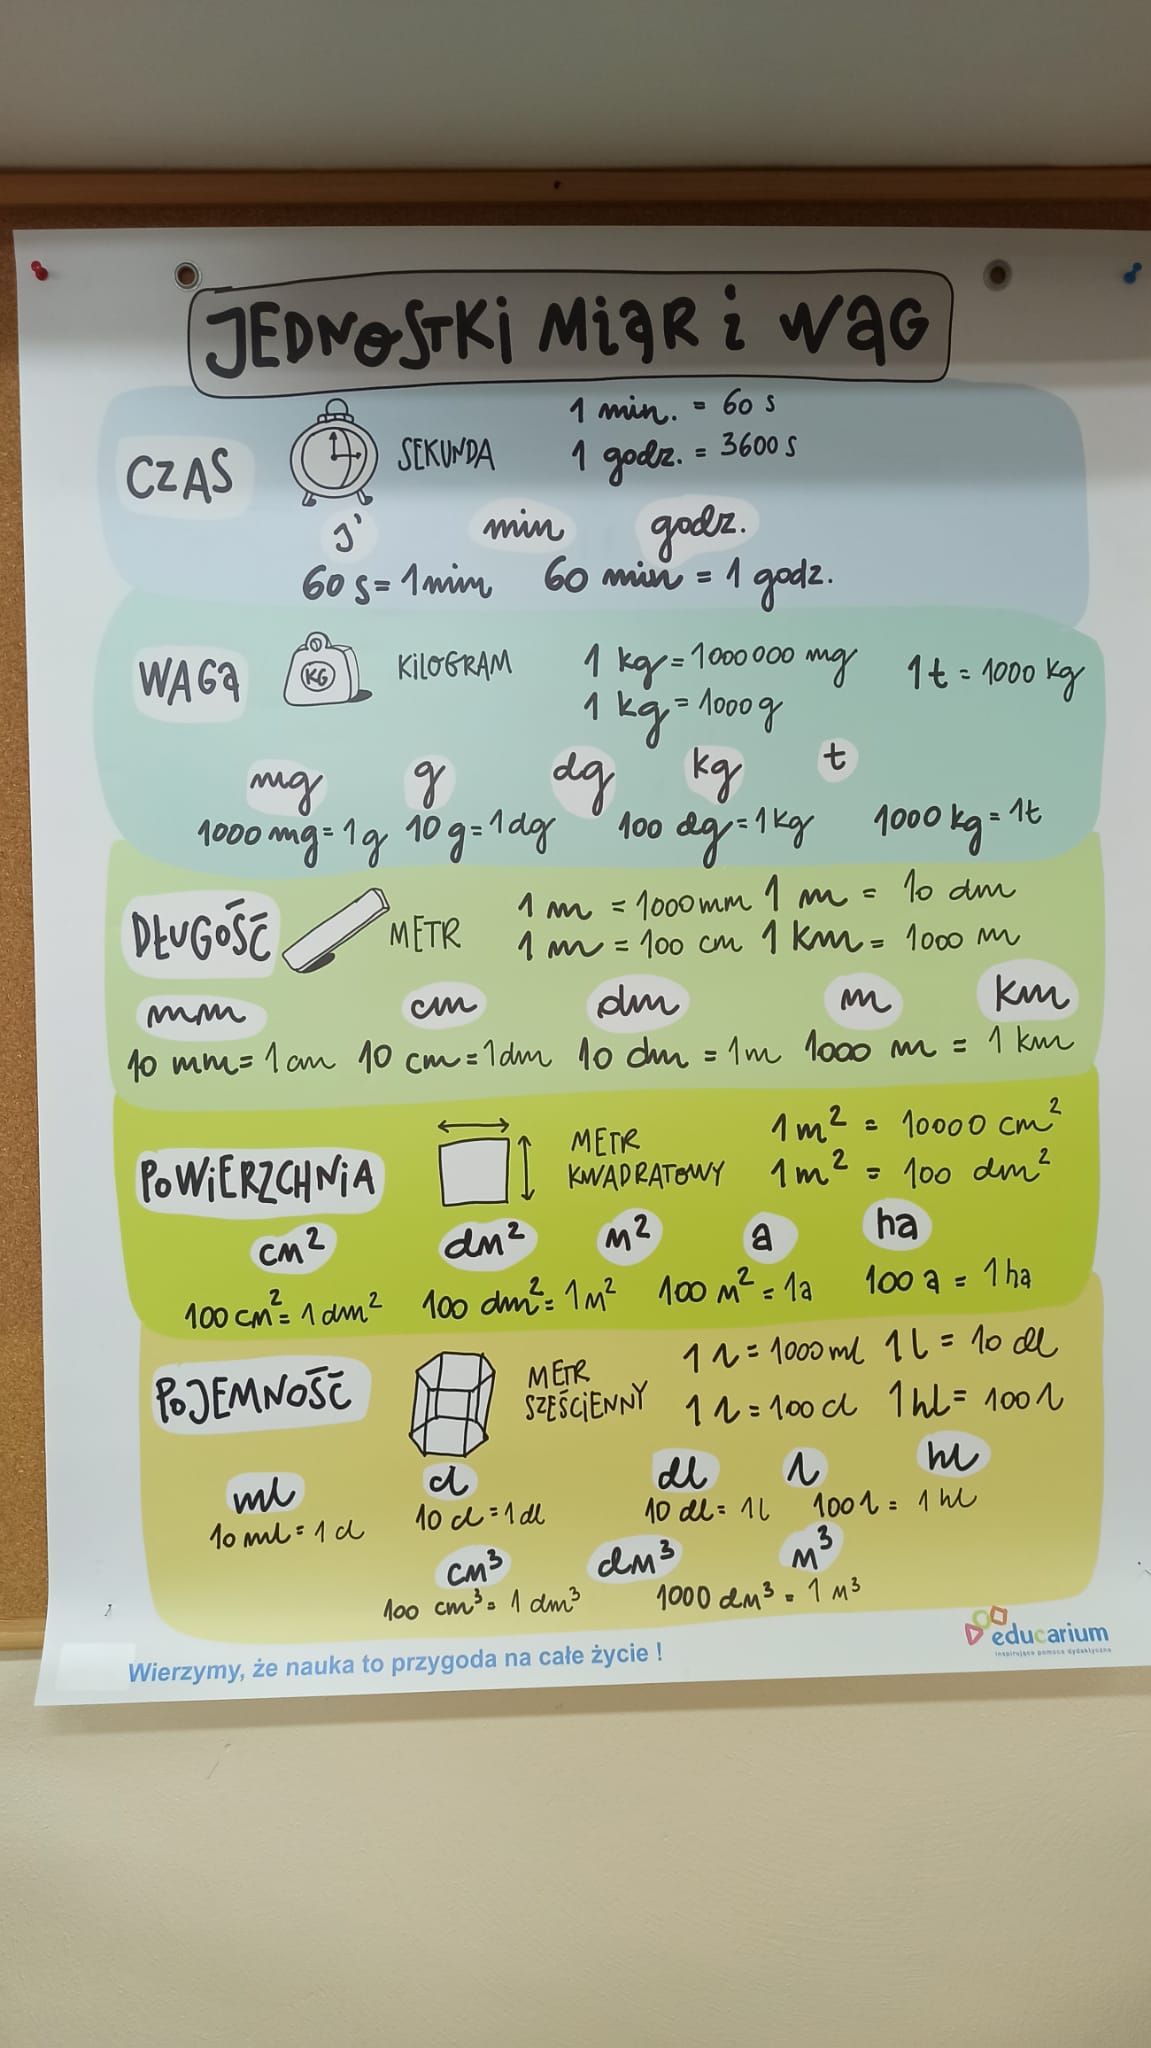 JEDNOSTKI MIAR i WAG
CZAS
SEKUNDA
1 min. = 60 s
1 godz. = 3600 s
s
min
godz.
60 s = 1 min
60 min = 1 godz.
WAGA
KG
KiLOGRAM
1 kg = 1000 000 mg
1 kg = 1000 g
1 t = 1000 kg
mg
g
dg
kg
t
1000 mg = 1 g
10 g = 1 dg
100 dg = 1 kg
1000 kg = 1t
DŁUGOŚĆ
METR
1 m = 1000 mm
1 m = 10 dm
1 m = 100 cm
1 km = 1000 m
mm
cm
dm
m
km
10 mm = 1 cm
10 cm = 1 dm
10 dm = 1 m
1000 m = 1 km
POWiERZCHNiA
METR
KWADRATOWY
1 m² = 10000 cm²
1 m² = 100 dm²
cm²
dm²
m²
a
ha
100 cm² = 1 dm²
100 dm² = 1 m²
100 m² = 1a
100 a = 1 ha
POJEMNOŚĆ
METR
SZEŚCiENNY
1 l = 1000 ml
1 l = 10 dl
1 l = 100 cl
1 hl = 100 l
ml
cl
dl
l
hl
10 ml = 1 cl
10 cl = 1 dl
10 dl = 1 l
100 l = 1 hl
cm³
dm³
m³
100 cm³ = 1 dm³
1000 dm³ = 1 m³
educarium
inspirujące pomoce dydaktyczne
Wierzymy, że nauka to przygoda na całe życie !